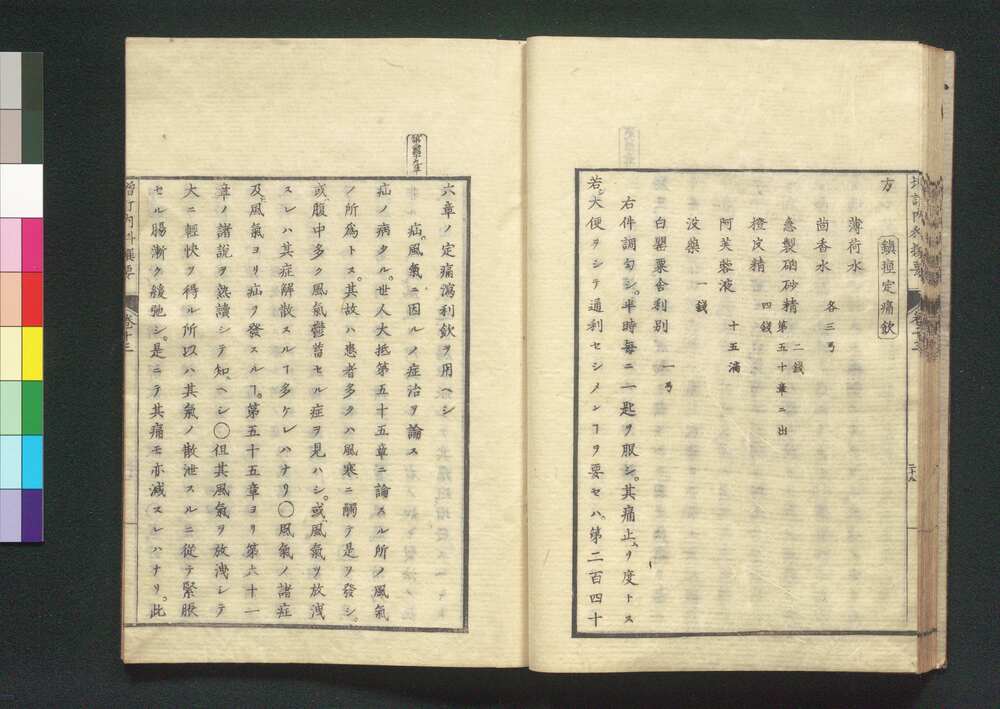 方 鎮痙定痛飲
薄荷水
茴香水 各三弓
急製硇砂精 第五十章ニ出 二錢
橙皮精 四錢
阿芙蓉液 十五滴
没藥 一錢
白罌粟舎利別 一弓
右件調勻シ。半時毎ニ一匙ヲ服シ。其痛止ムヲ度トス
若シ大便ヲシテ通利セシメンヿヲ要セハ。第二百四十
六章ノ定痛瀉利飲ヲ用ヘシ
疝。風氣ニ因ルノ症治ヲ論ス
疝ノ病タル。世人大抵第五十五章ニ論スル所ノ風氣
ノ所爲トス。其故ハ患者多クハ風寒ニ觸テ是ヲ發シ。
或ハ腹中多ク風氣鬱蓄セル症ヲ見ハシ。或ハ風氣ヲ放洩
スレハ其症解散スルヿ多ケレハナリ○風氣ノ諸症
及ヒ風氣ヨリ疝ヲ發スルヿ。第五十五章ヨリ第六十一
章ノ諸説ヲ熟讀シテ知ヘシ○但其風氣ヲ放洩シテ
大ニ輕快ヲ得ル所以ハ其氣ノ散泄スルニ從テ緊脹
セル腸漸ク緩弛シ。是ニテ其痛モ亦減スレハナリ。此
増訂内科撰要 卷十三